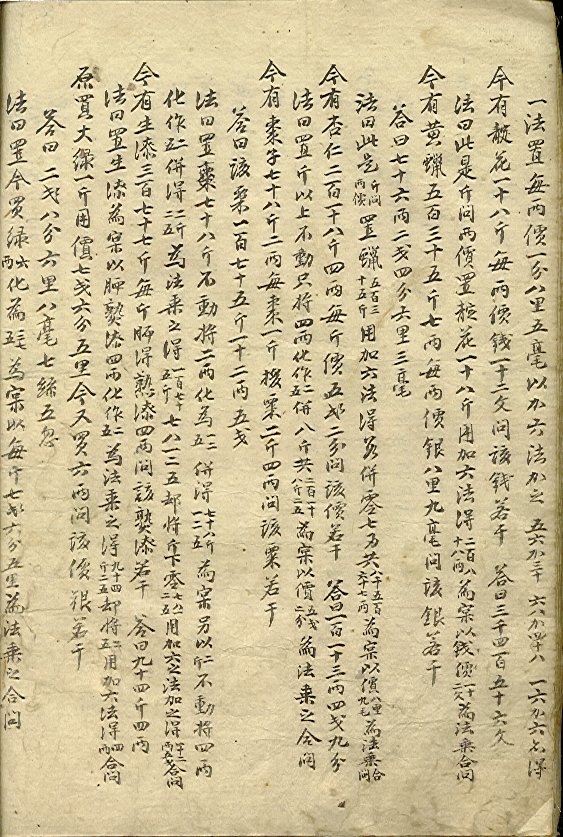 一法置每两價一分八里五毫以加六法加之 五六加三十 六八加四十八 一六加六名得
今有棉花一十八斤每两價錢一十二文問該錢若干 答曰三千四百五十六文
法曰此是斤問两價置棉花一十八斤用加六法得二百八十八两為宲以錢價一十二文為法乘合問
今有黄蠟五百三十五斤七两每两價銀八里九毫問該銀若干
答曰七十六两二戔四分六里三毫
法曰此是斤問两價置蠟五百三十五斤用加六法得若併零七两共八千五百六十七两為宲以價八里九毛為法乘合問
今有杏仁二百一十八斤四两每斤價五戔二分問該價若干 答曰一百一十三两四戔九分
法曰置斤以上不動只將四两化作二五併八斤共二百一十八斤二五為宲以價五戔二分為法乘之合問
今有棗子七十八斤二两每棗一斤換粟二斤四两問該粟若干
答曰該粟一百七十五斤一十二两五戔
法曰置棗七十八斤不動將二两化為一二五併得七十八斤一二五為宲另以二斤不動將四两
化作二五併得二斤二五為法乘之得一百七十五斤七八一二五却將斤下零七八一二五用加六之法加之得一十二两五戔合問
今有生漆三百七十七斤每斤晒得熟漆四两問該熟漆若干 答曰九十四斤四两
法曰置生漆為宲以晒熟漆四两化作二五為法乘之得九十四斤二五却將二五用加六法得四两合問
原買大綠一斤用價七戔六分五里今又買六两問該價銀若干
答曰 二戔八分六里八毫七絲五忽
法曰置今買綠六两化為三七五為宲以每斤七戔六分五里為法乘之合問